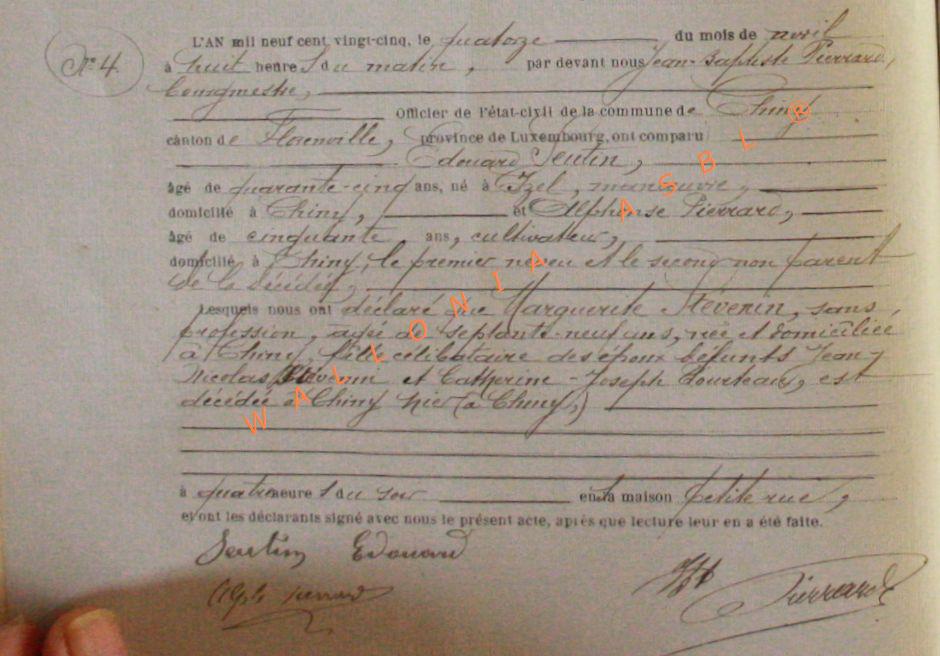 N° 4
L'AN mil neuf cent vingt-cinq, le quatorze du mois de avril
à huit heures du matin, par devant nous Jean-Baptiste Pierrard,
bourgmestre,
Officier de l'état-civil de la commune de Chiny
canton de Florenville, province de Luxembourg, ont comparu
Edouard Jentin,
âgé de quarante-cinq ans, né à Izel, manœuvre,
domicilié à Chiny, et Alphonse Pierrard,
âgé de cinquante ans, cultivateur,
domicilié à Chiny, le premier neveu et le second non parent
de la décédée,
Lesquels nous ont déclaré que Marguerite Stévenin, sans
profession, agée de septante-neuf ans, née et domiciliée
à Chiny, fille célibataire des époux défunts Jean-
Nicolas et Catherine-Joseph, est
décédée à Chiny hier (à Chiny,)
à quatre heures du soir en la maison petite rue,
et ont les déclarants signé avec nous le présent acte, après que lecture leur en a été faite.
Edouard
Pierrard
Pierrard
WALLONIA ASBL ®